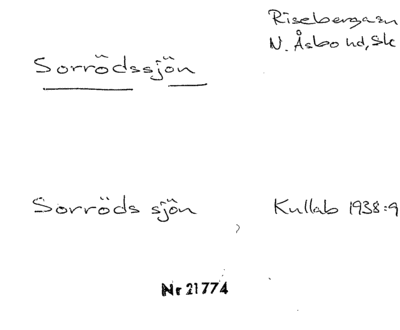 Risebergasn
N. Åsbo hd, Sk
Sorrödssjön
Sorröds sjön
Kullab 1938:9
Nr 21774